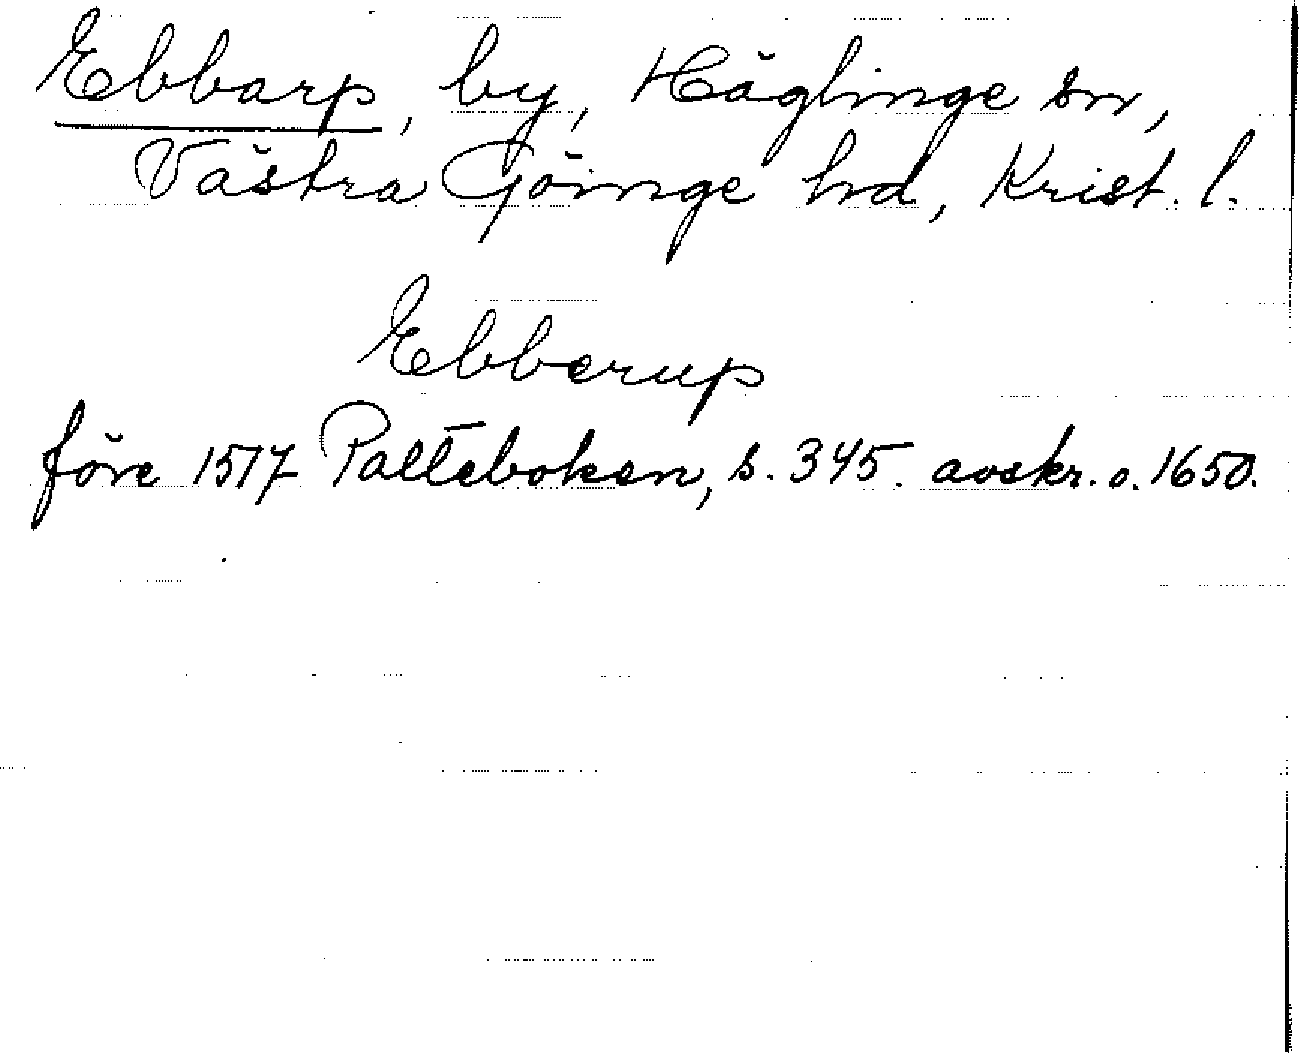 Ebbarp, by, Häglinge sn,
Västra Göinge hd, Krist. l.
Ebberup
före 1517 Palteboken, s. 345. avskr. o. 1650.